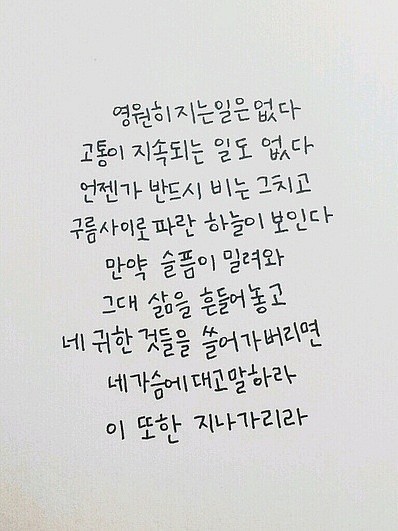 영원히 지는 일은 없다
고통이 지속되는 일도 없다
언젠가 반드시 비는 그치고
구름사이로 파란 하늘이 보인다
만약 슬픔이 밀려와
그대 삶을 흔들어 놓고
네 귀한 것들을 쓸어가 버리면
네 가슴에 대고 말하라
이 또한 지나가리라